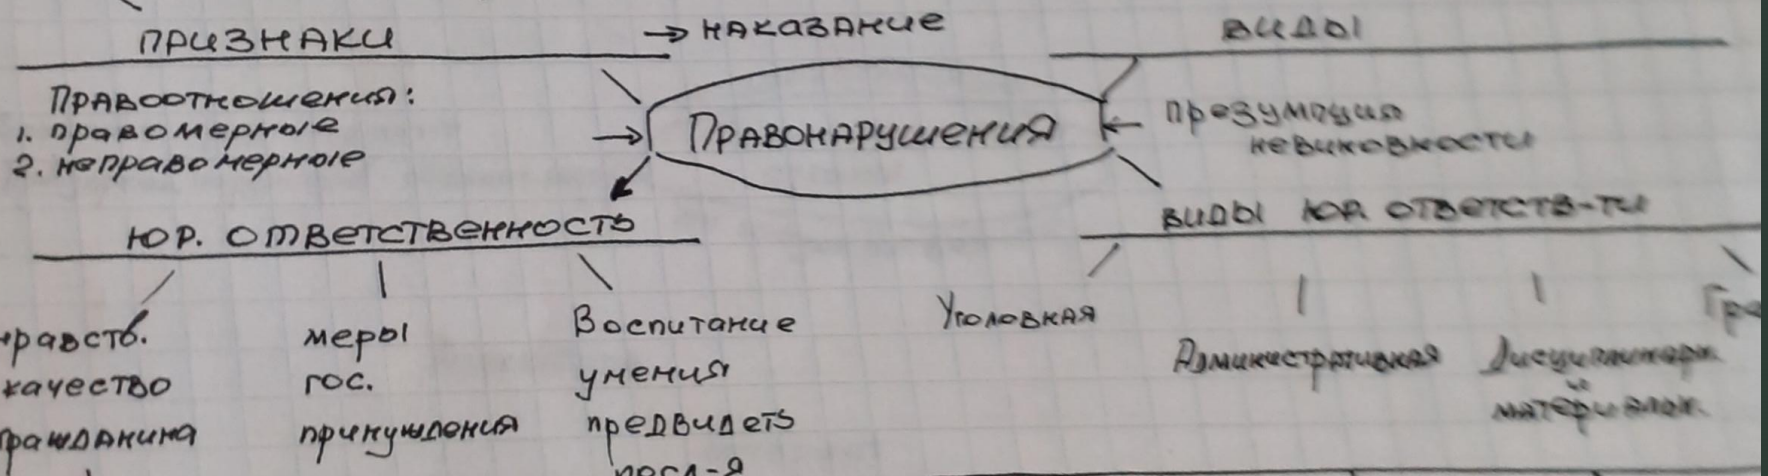 признаки
→ наказание
виды
Правоотношения:
1. правомерные
2. неправомерные
→ Правонарушения
← презумпция
невиновности
юр. ответственность
виды юр. ответств-ти
нравств.
качество
гражданина
меры
гос.
принуждения
Воспитание
умения
предвидеть
посл-я
Уголовная
Административная
Дисциплинарн.
и
материальн.
Гра